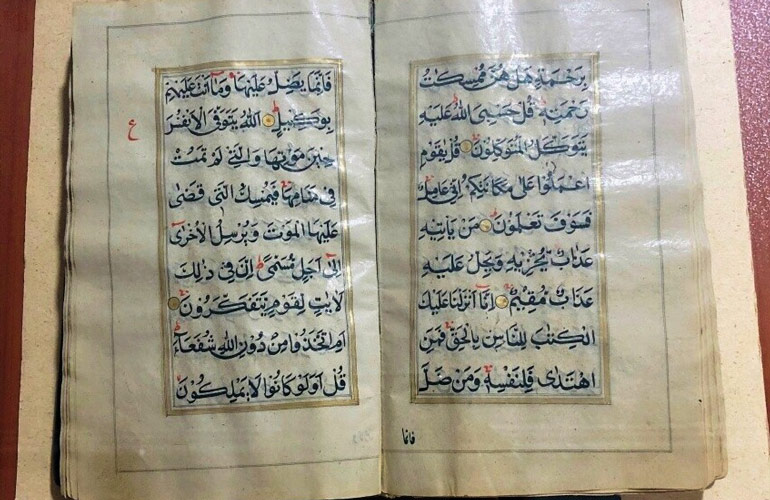 بِرَحْمَةٍ هَلْ هُنَّ مُمْسِكٰتُ
رَحْمَتِهٖ قُلْ حَسْبِیَ اللّٰهُ عَلَیْهِ
یَتَوَكَّلُ الْمُتَوَكِّلُوْنَ قُلْ یٰقَوْمِ
اعْمَلُوْا عَلٰی مَكَانَتِكُمْ اِنِّیْ عَامِلٌ
فَسَوْفَ تَعْلَمُوْنَ مَنْ یَّاْتِیْهِ
عَذَابٌ یُّخْزِیْهِ وَیَحِلُّ عَلَیْهِ
عَذَابٌ مُّقِیْمٌ اِنَّا اَنْزَلْنَا عَلَیْكَ
الْكِتٰبَ لِلنَّاسِ بِالْحَقِّ فَمَنِ
اهْتَدٰی فَلِنَفْسِهٖ وَمَنْ ضَلَّ
فانما
فَاِنَّمَا یَضِلُّ عَلَیْهَا وَمَا اَنْتَ عَلَیْهِمْ
بِوَكِیْلٍ اَللّٰهُ یَتَوَفَّی الْاَنْفُسَ
ع
حِیْنَ مَوْتِهَا وَالَّتِیْ لَمْ تَمُتْ
فِیْ مَنَامِهَا فَیُمْسِكُ الَّتِیْ قَضٰی
عَلَیْهَا الْمَوْتَ وَیُرْسِلُ الْاُخْرٰی
اِلٰی اَجَلٍ مُّسَمًّی اِنَّ فِیْ ذٰلِكَ
لَاٰیٰتٍ لِّقَوْمٍ یَّتَفَكَّرُوْنَ
اَمِ اتَّخَذُوْا مِنْ دُوْنِ اللّٰهِ شُفَعَآءَ
قُلْ اَوَلَوْ كَانُوْا لَا یَمْلِكُوْنَ